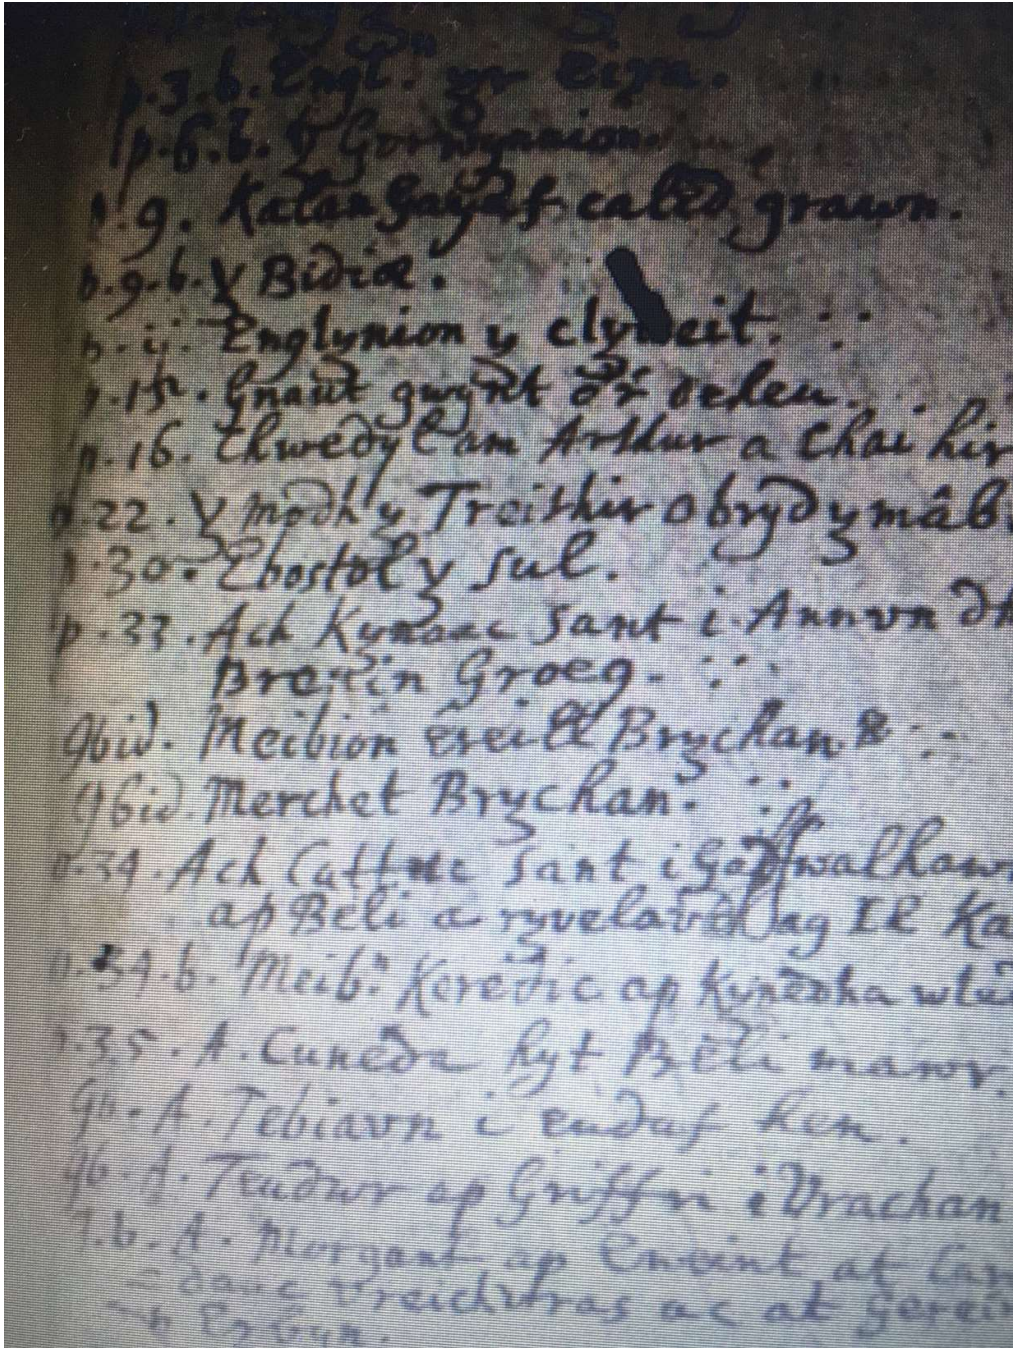 p.3.b. Engl.n yr Eira.
p.6.b. Y Gorwynnion.
p.9. Kalan Gayaf caled grawn.
p.9.b. Y Bidiæ.
p.ij. Englynion y clyweit.
p.15. Gnawt gwynt o'r deheu.
p.16. Chwedyl am Arthur a Chai hir
p.22. Y modh y Treithir o bryd y mâb
p.30. Ebostol y Sul.
p.33. Ach Kynauc Sant i Annvn
Brenin Groeg.
Ibid. Meibion ereill Brychan &
Ibid. Merchet Brychan.
p.34. Ach Cattuc Sant i
ap Beli a ryvelawdh ag Il Ka
p.34.b. Meib: Keredic ap Kynedha wle
p.35. A. Cuneda hyt Beli mawr.
Ib. A. Tebiavn i eudaf hen.
Ib. A. Teudwr ap Griffri i Vrachan
A. Morgant ap Eweint at Car
dauc Vreichvras ac at Gerei
n Erbyn.